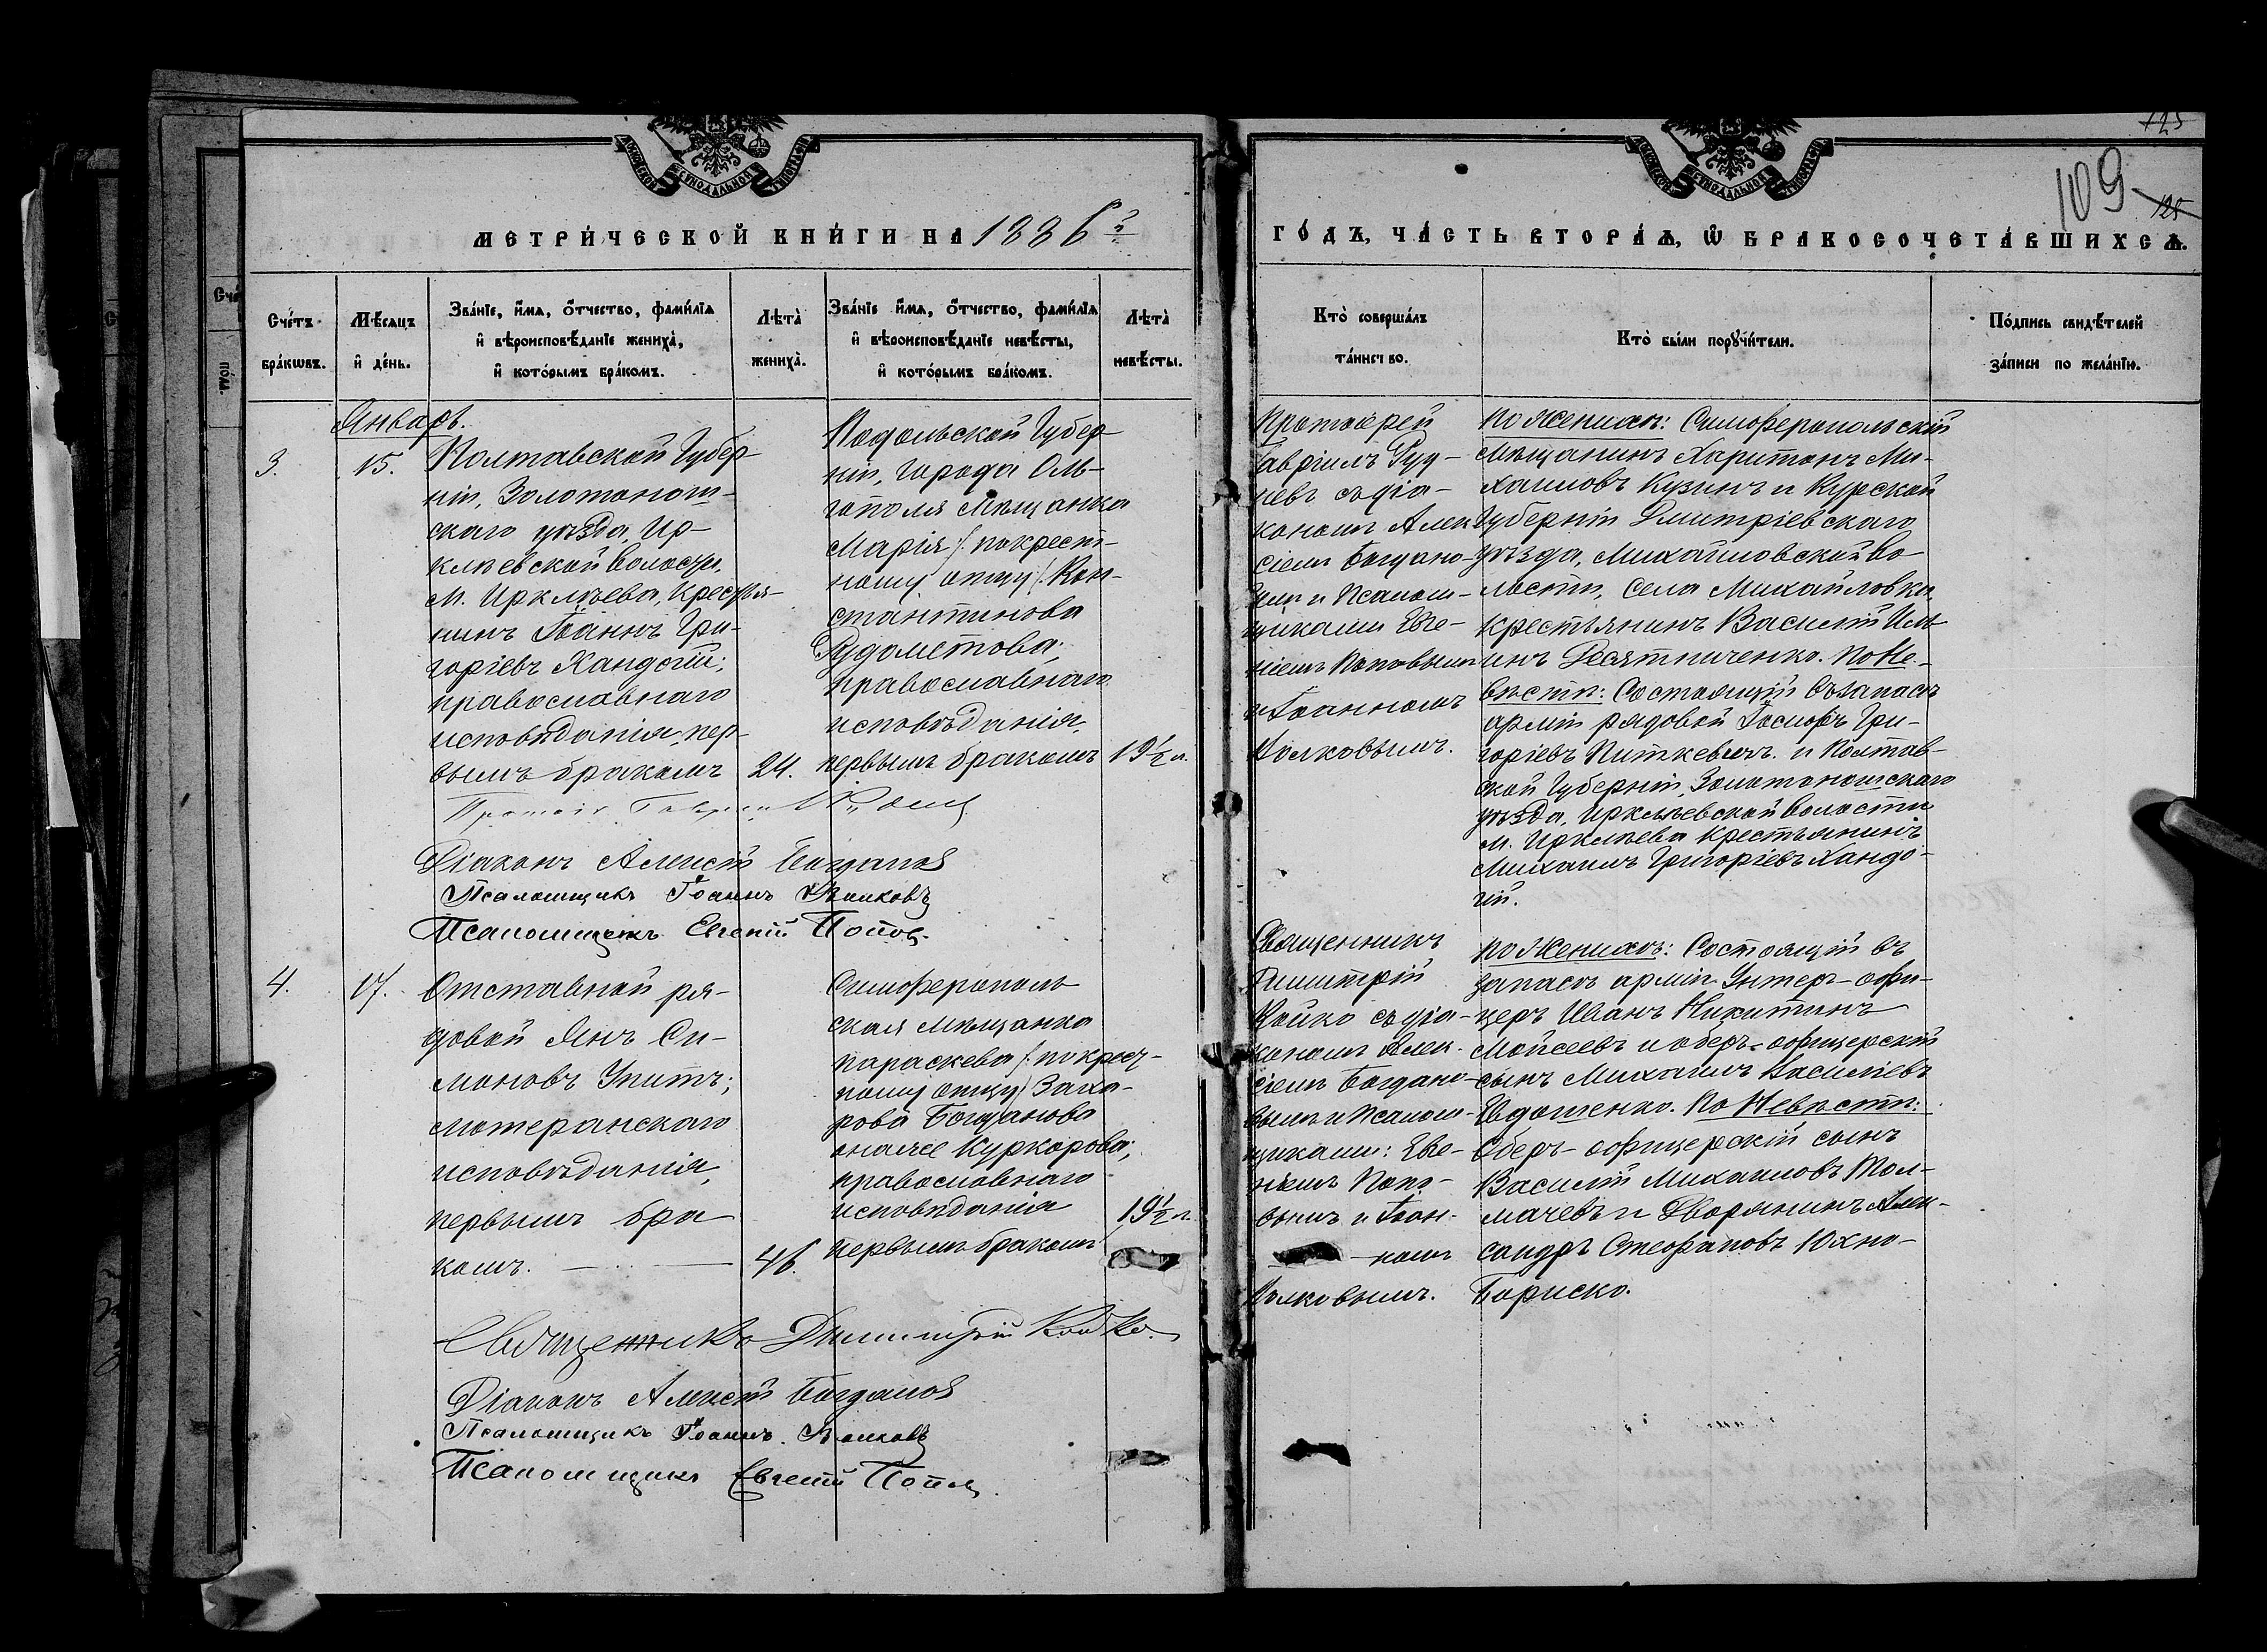 125
109
125
МЕТРИЧЕСКОЙ КНИГИ НА 1886 й
ГОДЪ, ЧАСТЬ ВТОРАЯ, Ѡ БРАКОСОЧЕТАВШИХСЯ.
Счетъ бракѡвъ.
Мѣсяцъ и день.
Званіе, имя, отчество, фамилія
и вѣроисповѣданіе жениха,
и которымъ бракомъ.
Лѣта жениха.
Званіе имя, отчество, фамилія
и вѣроисповѣданіе невѣсты,
и которымъ бракомъ.
Лѣта невѣсты.
Кто совершалъ
таинство.
Кто были поручители.
Подпись свидѣтелей
записи по желанію.
Январь.
3.
15.
Полтавской Губер-
ніи, Золотонош-
скаго уѣзда, Ир-
клѣевской волости,
м. Ирклѣева, крестья-
нинъ Іоаннъ Гри-
горіевъ Хандогій;
православнаго
исповѣданія, пер-
вымъ бракомъ
24.
Подольской Губер-
ніи, города Оль-
гополя мѣщанка
Марія /: по крест-
ному отцу :/ Кон-
стантинова
Рудометова;
православнаго
исповѣданія,
первымъ бракомъ
19½ л.
Протоіерей
Гавріилъ Руд-
невъ съ діа-
кономъ Алек-
сіемъ Богдано-
вымъ и псалом-
щиками Евге-
ніемъ Поповымъ
и Іоанномъ
Волковымъ.
По женихѣ: Симферопольскій
мѣщанинъ Харитонъ Ми-
хаиловъ Кузинъ и Курской
Губерніи Дмитріевскаго
уѣзда, Михайловской во-
лости, села Михайловки
крестьянинъ Василій Иль-
инъ Десятниченко. По не-
вѣстѣ: Состоящій въ запасѣ
арміи рядовой Іосифъ Гри-
горіевъ Питкевичъ и Полтав-
ской Губерніи, Золотоношскаго
уѣзда, Ирклѣевской волости
м. Ирклѣева крестьянинъ
Михаилъ Григоріевъ Хандо-
гій.
Діаконъ Алексій Богдановъ
Псаломщикъ Іоаннъ Волковъ
Псаломщикъ Евгеній Поповъ.
4.
17.
Отставной ря-
довой Янъ Си-
моновъ Упитъ;
лютеранскаго
исповѣданія,
первымъ бра-
комъ.
46.
Симферополь-
ская мѣщанка
Параскева /: по крест-
ному отцу :/ Заха-
рова Богданова
она же Куркорова;
православнаго
исповѣданія
первымъ бракомъ
19½ л.
Священникъ
Димитрій
Койко съ діа-
кономъ Алек-
сіемъ Богдано-
вымъ и псалом-
щиками: Евге-
ніемъ Попо-
вымъ и Іоан-
номъ
Волковымъ.
По женихѣ: Состоящій въ
запасѣ арміи Унтеръ-офи-
церъ Иванъ Никитинъ
Мойсеевъ и оберъ-офицерскій
сынъ Михаилъ Василіевъ
Евдошенко. По невѣстѣ:
Оберъ-офицерскій сынъ
Василій Михаиловъ Тол-
мачевъ и Дворянинъ Алек-
сандръ Стефановъ Юхно-
Бориско.
Священникъ Димитрій Койко.
Діаконъ Алексій Богдановъ
Псаломщикъ Іоаннъ Волковъ
Псаломщикъ Евгеній Поповъ.